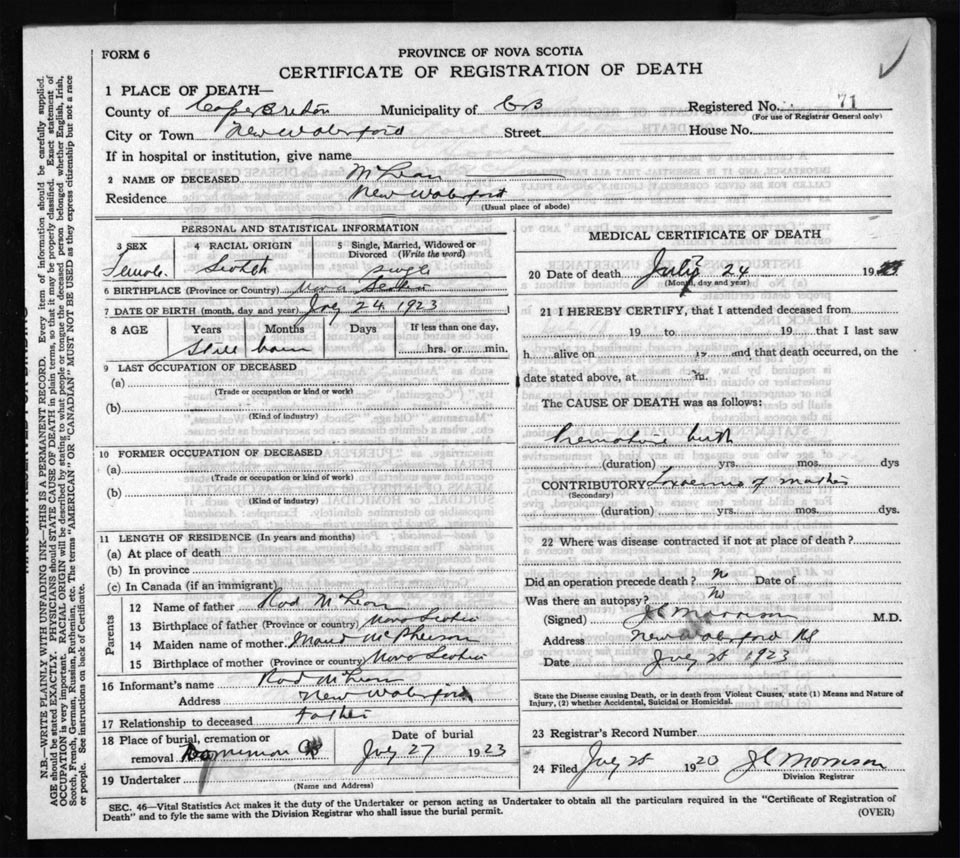 FORM 6
PROVINCE OF NOVA SCOTIA
CERTIFICATE OF REGISTRATION OF DEATH
1 PLACE OF DEATH—
County of Cape Breton Municipality of CB Registered No. 71
(For use of Registrar General only)
City or Town New Waterford Street House No.
If in hospital or institution, give name
2 NAME OF DECEASED McLean
Residence New Waterford
(Usual place of abode)
PERSONAL AND STATISTICAL INFORMATION
3 SEX 4 RACIAL ORIGIN 5 Single, Married, Widowed or Divorced (Write the word)
Female Scotch single
6 BIRTHPLACE (Province or Country) Nova Scotia
7 DATE OF BIRTH (month, day and year) July 24 1923
8 AGE Years Months Days If less than one day,
Still born hrs. or min.
9 LAST OCCUPATION OF DECEASED
(a)
(Trade or occupation or kind or work)
(b)
(Kind of industry)
10 FORMER OCCUPATION OF DECEASED
(a)
(Trade or occupation or kind of work)
(b)
(Kind of industry)
11 LENGTH OF RESIDENCE (In years and months)
(a) At place of death
(b) In province
(c) In Canada (if an immigrant)
Parents
12 Name of father Rod McLean
13 Birthplace of father (Province or country) Nova Scotia
14 Maiden name of mother Maud McPherson
15 Birthplace of mother (Province or country) Nova Scotia
16 Informant's name Rod McLean
Address New Waterford
17 Relationship to deceased father
18 Place of burial, cremation or Date of burial
removal Dominion CB July 27 1923
19 Undertaker
(Name and Address)
MEDICAL CERTIFICATE OF DEATH
20 Date of death July 24 19 23
(Month, day and year)
21 I HEREBY CERTIFY, that I attended deceased from
19 to 19 that I last saw
h alive on 19 and that death occurred, on the
date stated above, at m.
The CAUSE OF DEATH was as follows:
Premature birth
(duration) yrs. mos. dys
CONTRIBUTORY Toxaemia of mother
(Secondary)
(duration) yrs. mos. dys.
22 Where was disease contracted if not at place of death?
Did an operation precede death? n Date of
Was there an autopsy? No
(Signed) JC Morrison M.D.
Address New Waterford NS
Date July 28 1923
State the Disease causing Death, or in death from Violent Causes, state (1) Means and Nature of
Injury, (2) whether Accidental, Suicidal or Homicidal.
23 Registrar's Record Number
24 Filed July 28 1920 JC Morrison
Division Registrar
SEC. 46—Vital Statistics Act makes it the duty of the Undertaker or person acting as Undertaker to obtain all the particulars required in the "Certificate of Registration of
Death" and to fyle the same with the Division Registrar who shall issue the burial permit.
(OVER)
N.B.—WRITE PLAINLY WITH UNFADING INK—THIS IS A PERMANENT RECORD. Every item of information should be carefully supplied.
AGE should be stated EXACTLY. PHYSICIANS should STATE CAUSE OF DEATH in plain terms, so that it may be properly classified. Exact statement of
OCCUPATION is very important. RACIAL ORIGIN will be described by stating to what people or tongue the deceased person belonged whether English, Irish,
Scotch, French, German, Russian, Ruthenian, etc. The terms "AMERICAN" OR "CANADIAN" MUST NOT BE USED as they express citizenship but not a race
or people. See instructions on back of Certificate.